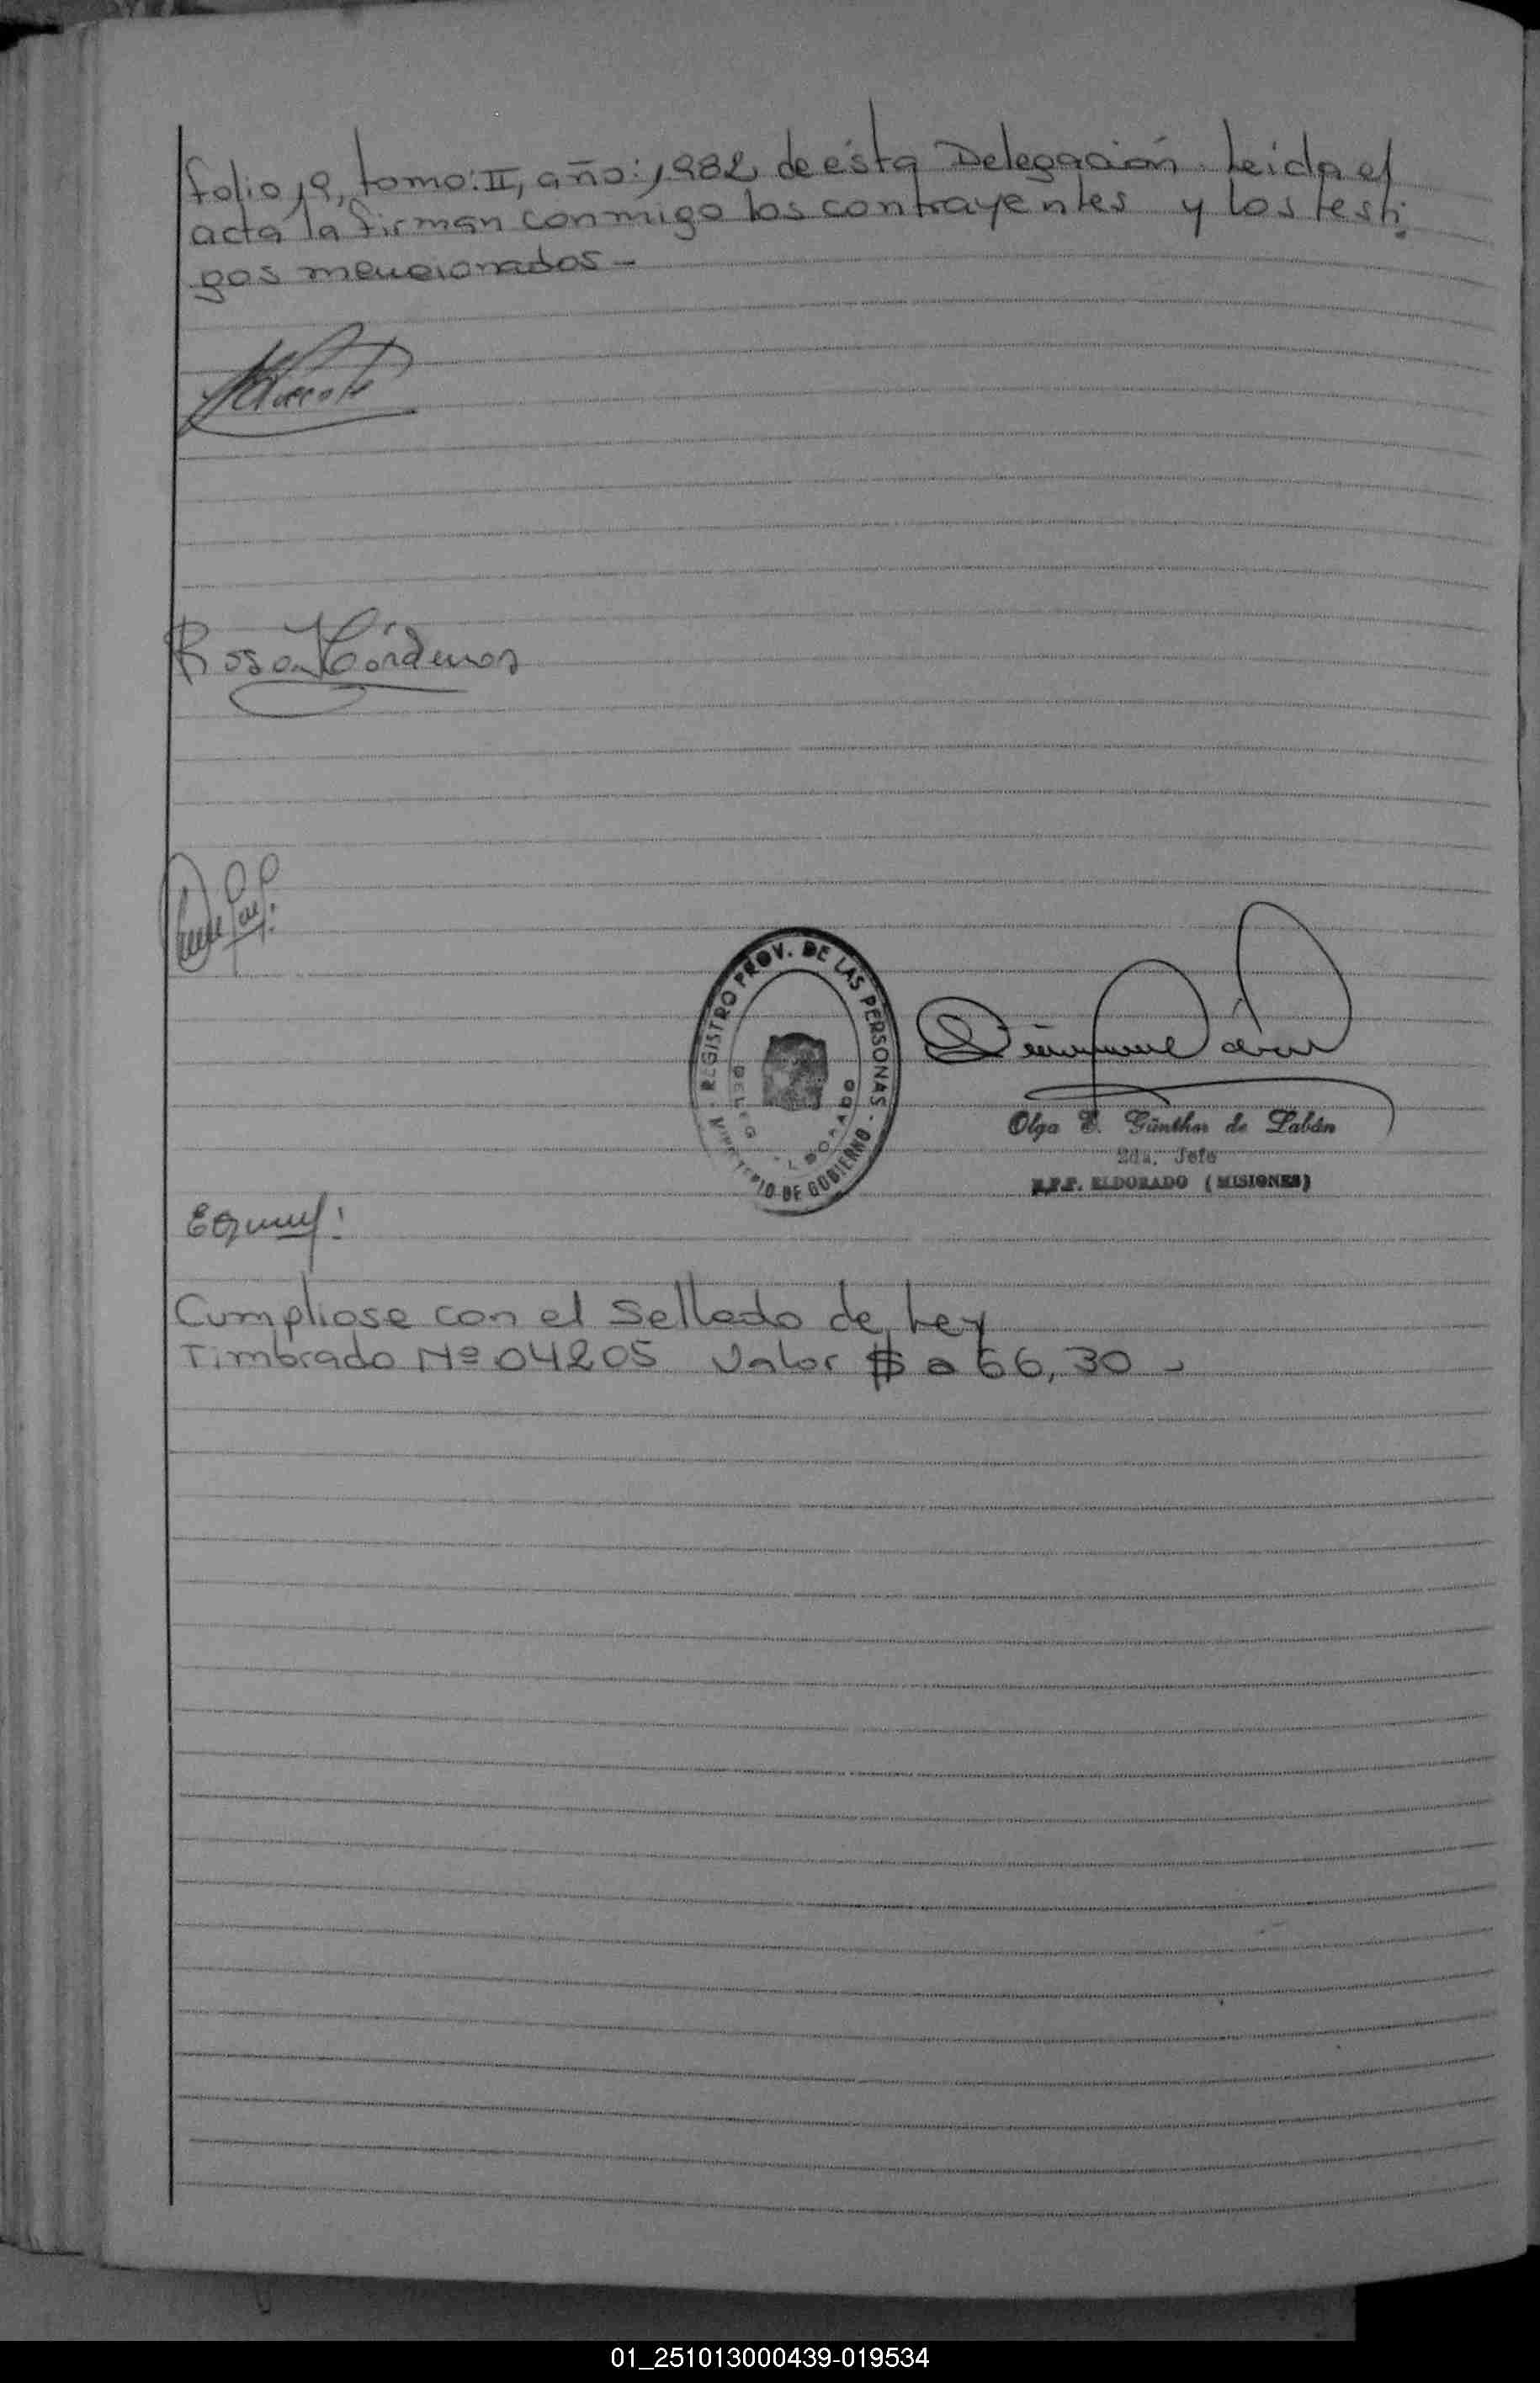 folio, 19, tomo: II, año: 1982, de ésta Delegación. Leida el
acta la firman conmigo los contrayentes y los testi
gos mencionados -
Rosa Cárdenas
REGISTRO PROV. DE LAS PERSONAS - MINISTERIO DE GOBIERNO -
Olga E. Günther de Labán
2da. Jefe
R.P.P. ELDORADO (MISIONES)
Cumpliose con el sellado de Ley
Timbrado Nº 04205 Valor $ a 66,30 -
01_251013000439-019534